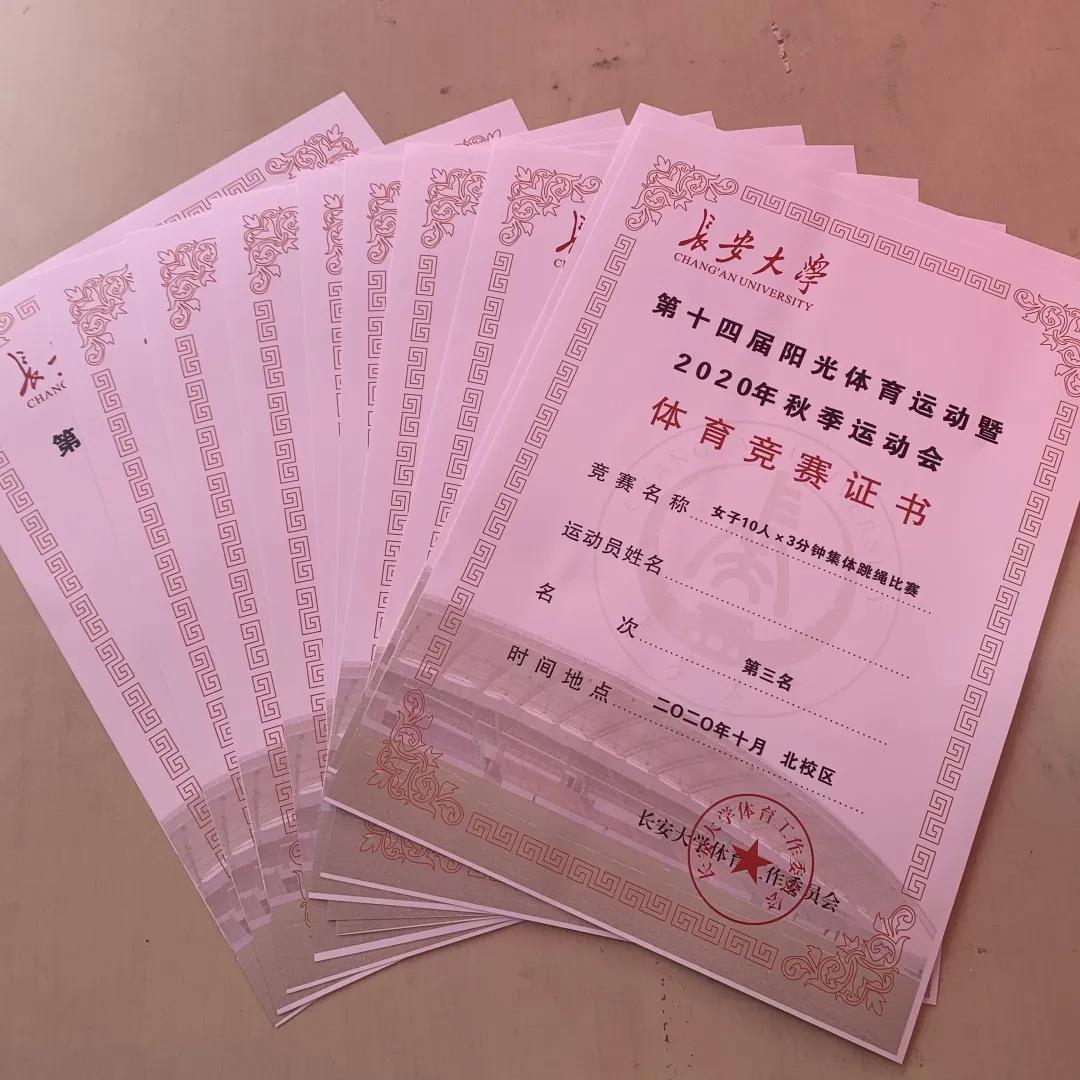 长安大学
CHANG'AN UNIVERSITY
第十四届阳光体育运动暨
2020年秋季运动会
体育竞赛证书
竞赛名称 女子10人×3分钟集体跳绳比赛
运动员姓名
名次 第三名
时间地点 二〇二〇年十月 北校区
长安大学体育工作委员会
长安大学体育工作委员会
CHANG
第